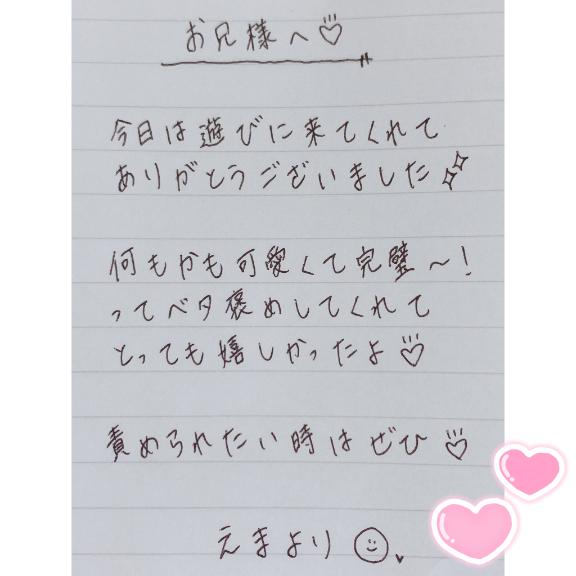 お兄様へ♡
今日は遊びに来てくれて
ありがとうございました✨
何もかも可愛くて完璧〜!
ってベタ褒めしてくれて
とっても嬉しかったよ♡
責められたい時はぜひ♡
えまより☺